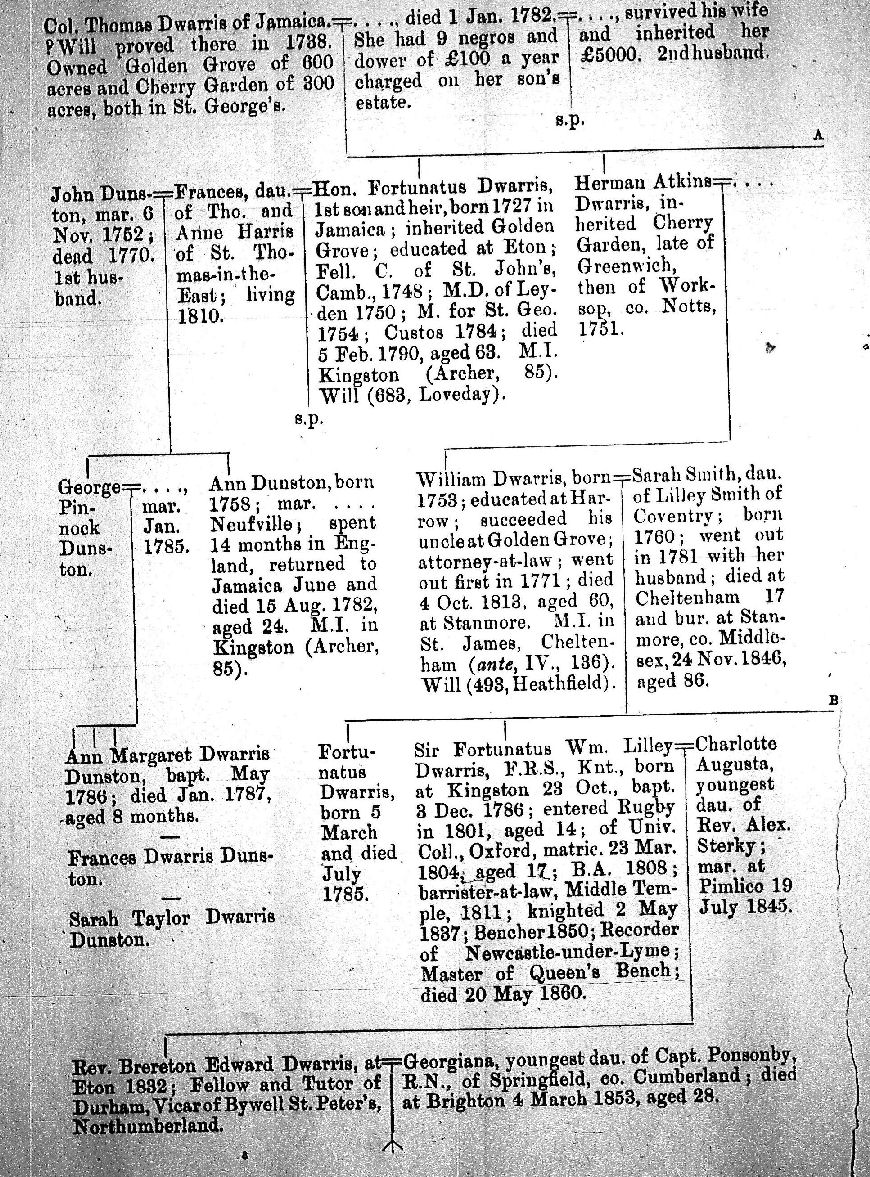 Col. Thomas Dwarris of Jamaica.=
? Will proved there in 1738.
Owned Golden Grove of 600
acres and Cherry Garden of 300
acres, both in St. George's.
. . . ., died 1 Jan. 1782.=
She had 9 negros and
dower of £100 a year
charged on her son's
estate.
. . . ., survived his wife
and inherited her
£5000. 2nd husband.
s.p.
A
John Duns-=
ton, mar. 6
Nov. 1752;
dead 1770.
1st hus-
band.
Frances, dau.=
of Tho. and
Anne Harris
of St. Tho-
mas-in-the-
East; living
1810.
Hon. Fortunatus Dwarris,
1st son and heir, born 1727 in
Jamaica; inherited Golden
Grove; educated at Eton;
Fell. C. of St. John's,
Camb., 1748; M.D. of Ley-
den 1750; M. for St. Geo.
1754; Custos 1784; died
5 Feb. 1790, aged 63. M.I.
Kingston (Archer, 85).
Will (683, Loveday).
s.p.
Herman Atkins=. . . .
Dwarris, in-
herited Cherry
Garden, late of
Greenwich,
then of Work-
sop, co. Notts,
1751.
George=
Pin-
nock
Duns-
ton.
. . . .,
mar.
Jan.
1785.
Ann Dunston, born
1758; mar. . . . .
Neufville; spent
14 months in Eng-
land, returned to
Jamaica June and
died 15 Aug. 1782,
aged 24. M.I. in
Kingston (Archer,
85).
William Dwarris, born=
1753; educated at Har-
row; succeeded his
uncle at Golden Grove;
attorney-at-law; went
out first in 1771; died
4 Oct. 1813, aged 60,
at Stanmore. M.I. in
St. James, Chelten-
ham (ante, IV., 136).
Will (493, Heathfield).
Sarah Smith, dau.
of Lilley Smith of
Coventry; born
1760; went out
in 1781 with her
husband; died at
Cheltenham 17
and bur. at Stan-
more, co. Middle-
sex, 24 Nov. 1846,
aged 86.
B
Ann Margaret Dwarris
Dunston, bapt. May
1786; died Jan. 1787,
aged 8 months.
—
Frances Dwarris Duns-
ton.
—
Sarah Taylor Dwarris
Dunston.
Fortu-
natus
Dwarris,
born 5
March
and died
July
1785.
Sir Fortunatus Wm. Lilley=
Dwarris, F.R.S., Knt., born
at Kingston 23 Oct., bapt.
3 Dec. 1786; entered Rugby
in 1801, aged 14; of Univ.
Coll., Oxford, matric. 23 Mar.
1804, aged 17; B.A. 1808;
barrister-at-law, Middle Tem-
ple, 1811; knighted 2 May
1837; Bencher 1850; Recorder
of Newcastle-under-Lyme;
Master of Queen's Bench;
died 20 May 1860.
Charlotte
Augusta,
youngest
dau. of
Rev. Alex.
Sterky;
mar. at
Pimlico 19
July 1845.
Rev. Brereton Edward Dwarris, at=
Eton 1832; Fellow and Tutor of
Durham, Vicar of Bywell St. Peter's,
Northumberland.
Georgiana, youngest dau. of Capt. Ponsonby,
R.N., of Springfield, co. Cumberland; died
at Brighton 4 March 1853, aged 28.